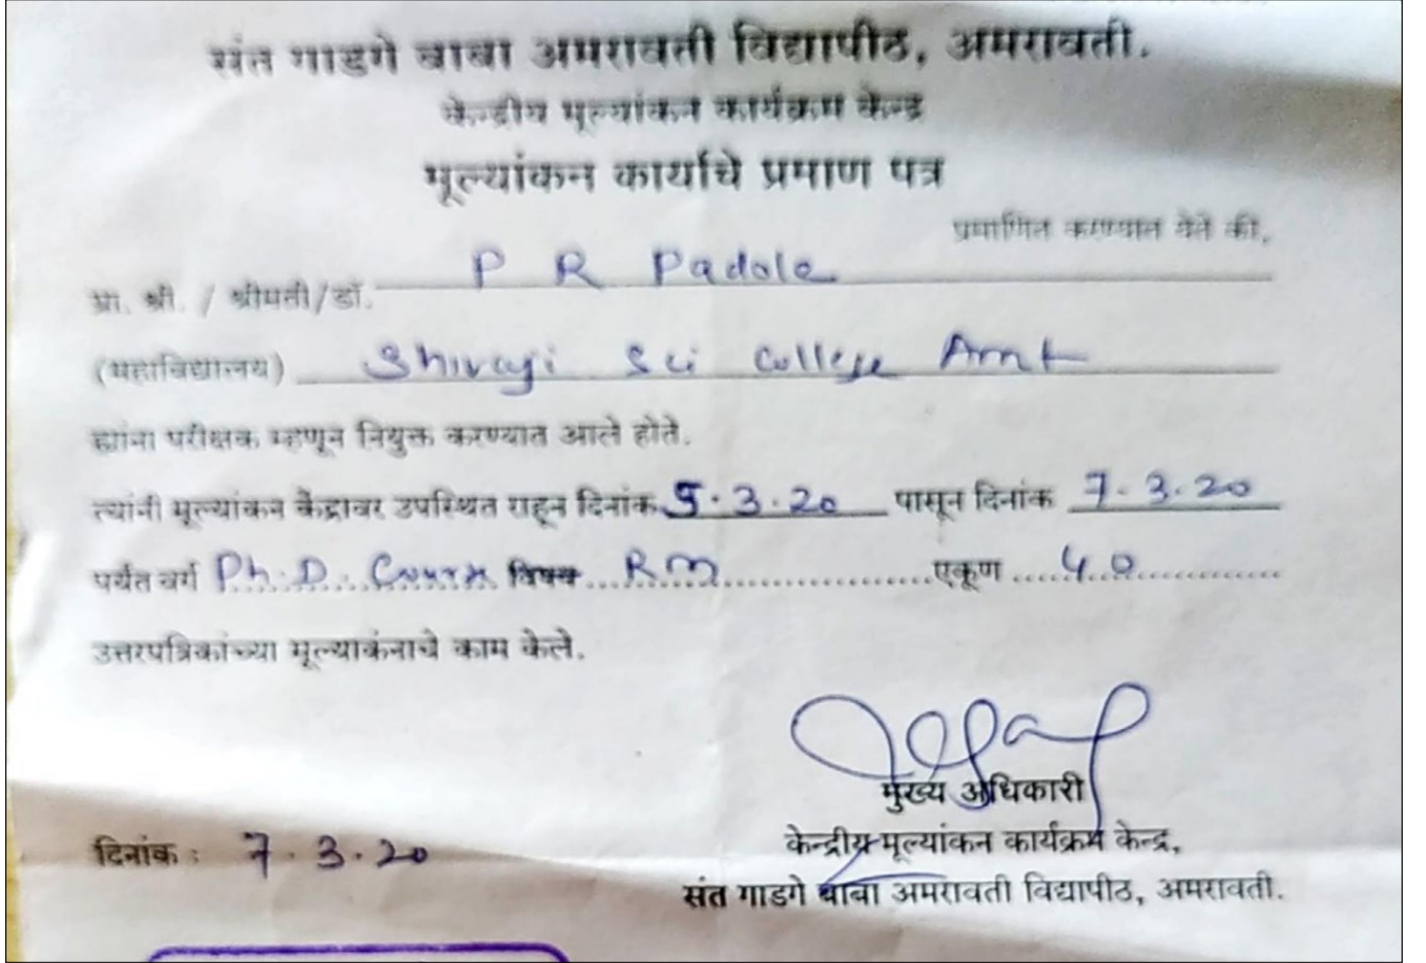 संत गाडगे बाबा अमरावती विद्यापीठ, अमरावती.
केन्द्रीय मूल्यांकन कार्यक्रम केन्द्र
मूल्यांकन कार्याचे प्रमाण पत्र
प्रमाणित करण्यात येते की,
प्रा. श्री. / श्रीमती/डॉ. P R Padole
(महाविद्यालय) Shivaji Sci College Amt
ह्यांना परीक्षक म्हणून नियुक्त करण्यात आले होते.
त्यांनी मूल्यांकन केंद्रावर उपस्थित राहून दिनांक 5.3.20 पासून दिनांक 7.3.20
पर्यंत वर्ग Ph.D. Course विषय RM एकूण 40
उत्तरपत्रिकांच्या मूल्याकंनाचे काम केले.
मुख्य अधिकारी
दिनांक : 7.3.20
केन्द्रीय मूल्यांकन कार्यक्रम केन्द्र,
संत गाडगे बाबा अमरावती विद्यापीठ, अमरावती.